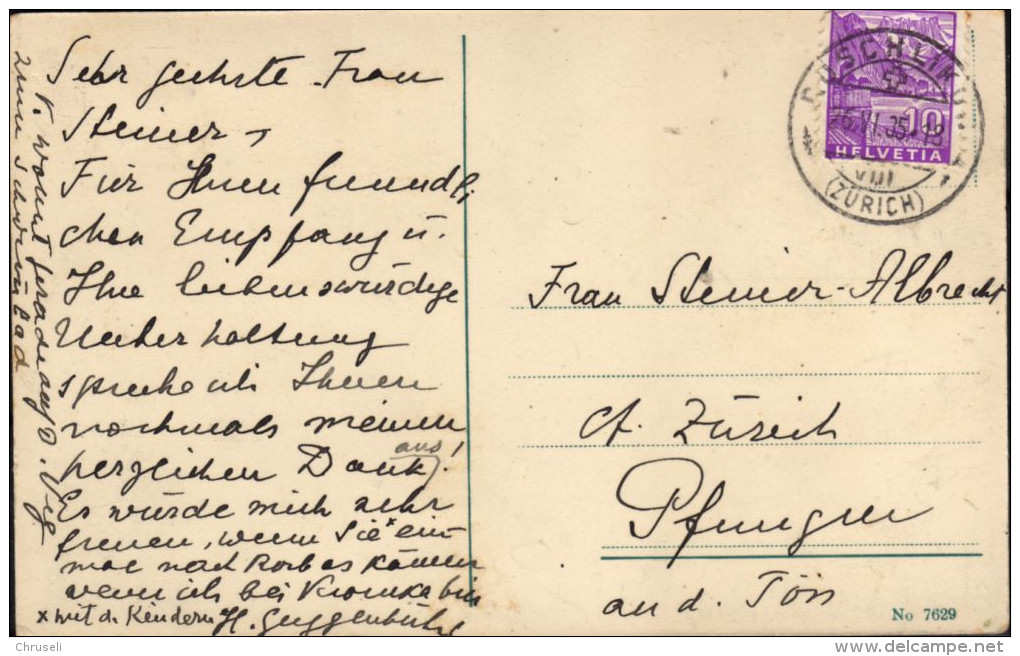 Sehr geehrte Frau
Steiner,
Für Ihren freundli
chen Empfang u.
Ihre liebenswürdige
Unterhaltung
spreche ich Ihnen
nochmals meinen
herzlichen Dank aus!
Es würde mich sehr
freuen, wenn Sie x ein
mal nach Rorbas kämen
wenn ich bei
x mit d. Kindern H. Guggenbühl
wohnt gerade auf d. Weg
zum Schwimmbad
RÜSCHLIKON
26.VI.35.-18
VIII
(ZÜRICH)
10
HELVETIA
Frau Steiner-Albrecht
Ct. Zürich
Pfungen
an d. Töss
No 7629
Chruseli
www.delcampe.net